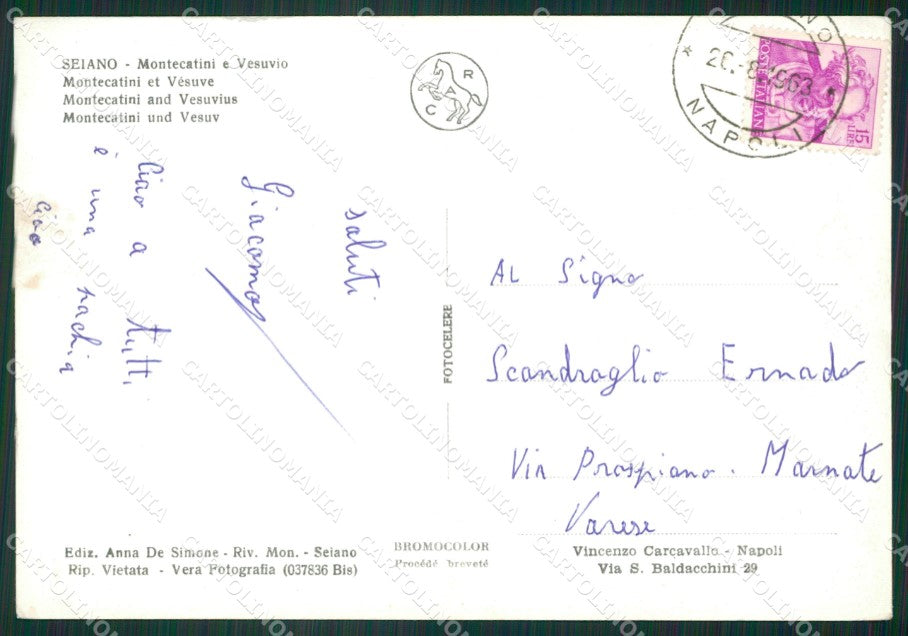 SEIANO - Montecatini e Vesuvio
Montecatini et Vésuve
Montecatini and Vesuvius
Montecatini und Vesuv
R
A
C
NO
26.-8.1963
NAPOLI
POSTE ITALIANE
15
LIRE
saluti
Giacomo
Ciao a tutti
è una rachia
ciao
FOTOCELERE
AL Signo
Scandraglio Ernado
Via Prospiano. Marnate
Varese
Ediz. Anna De Simone - Riv. Mon. - Seiano
Rip. Vietata - Vera Fotografia (037836 Bis)
BROMOCOLOR
Procédé breveté
Vincenzo Carcavallo - Napoli
Via S. Baldacchini 29
CARTOLINOMANIA